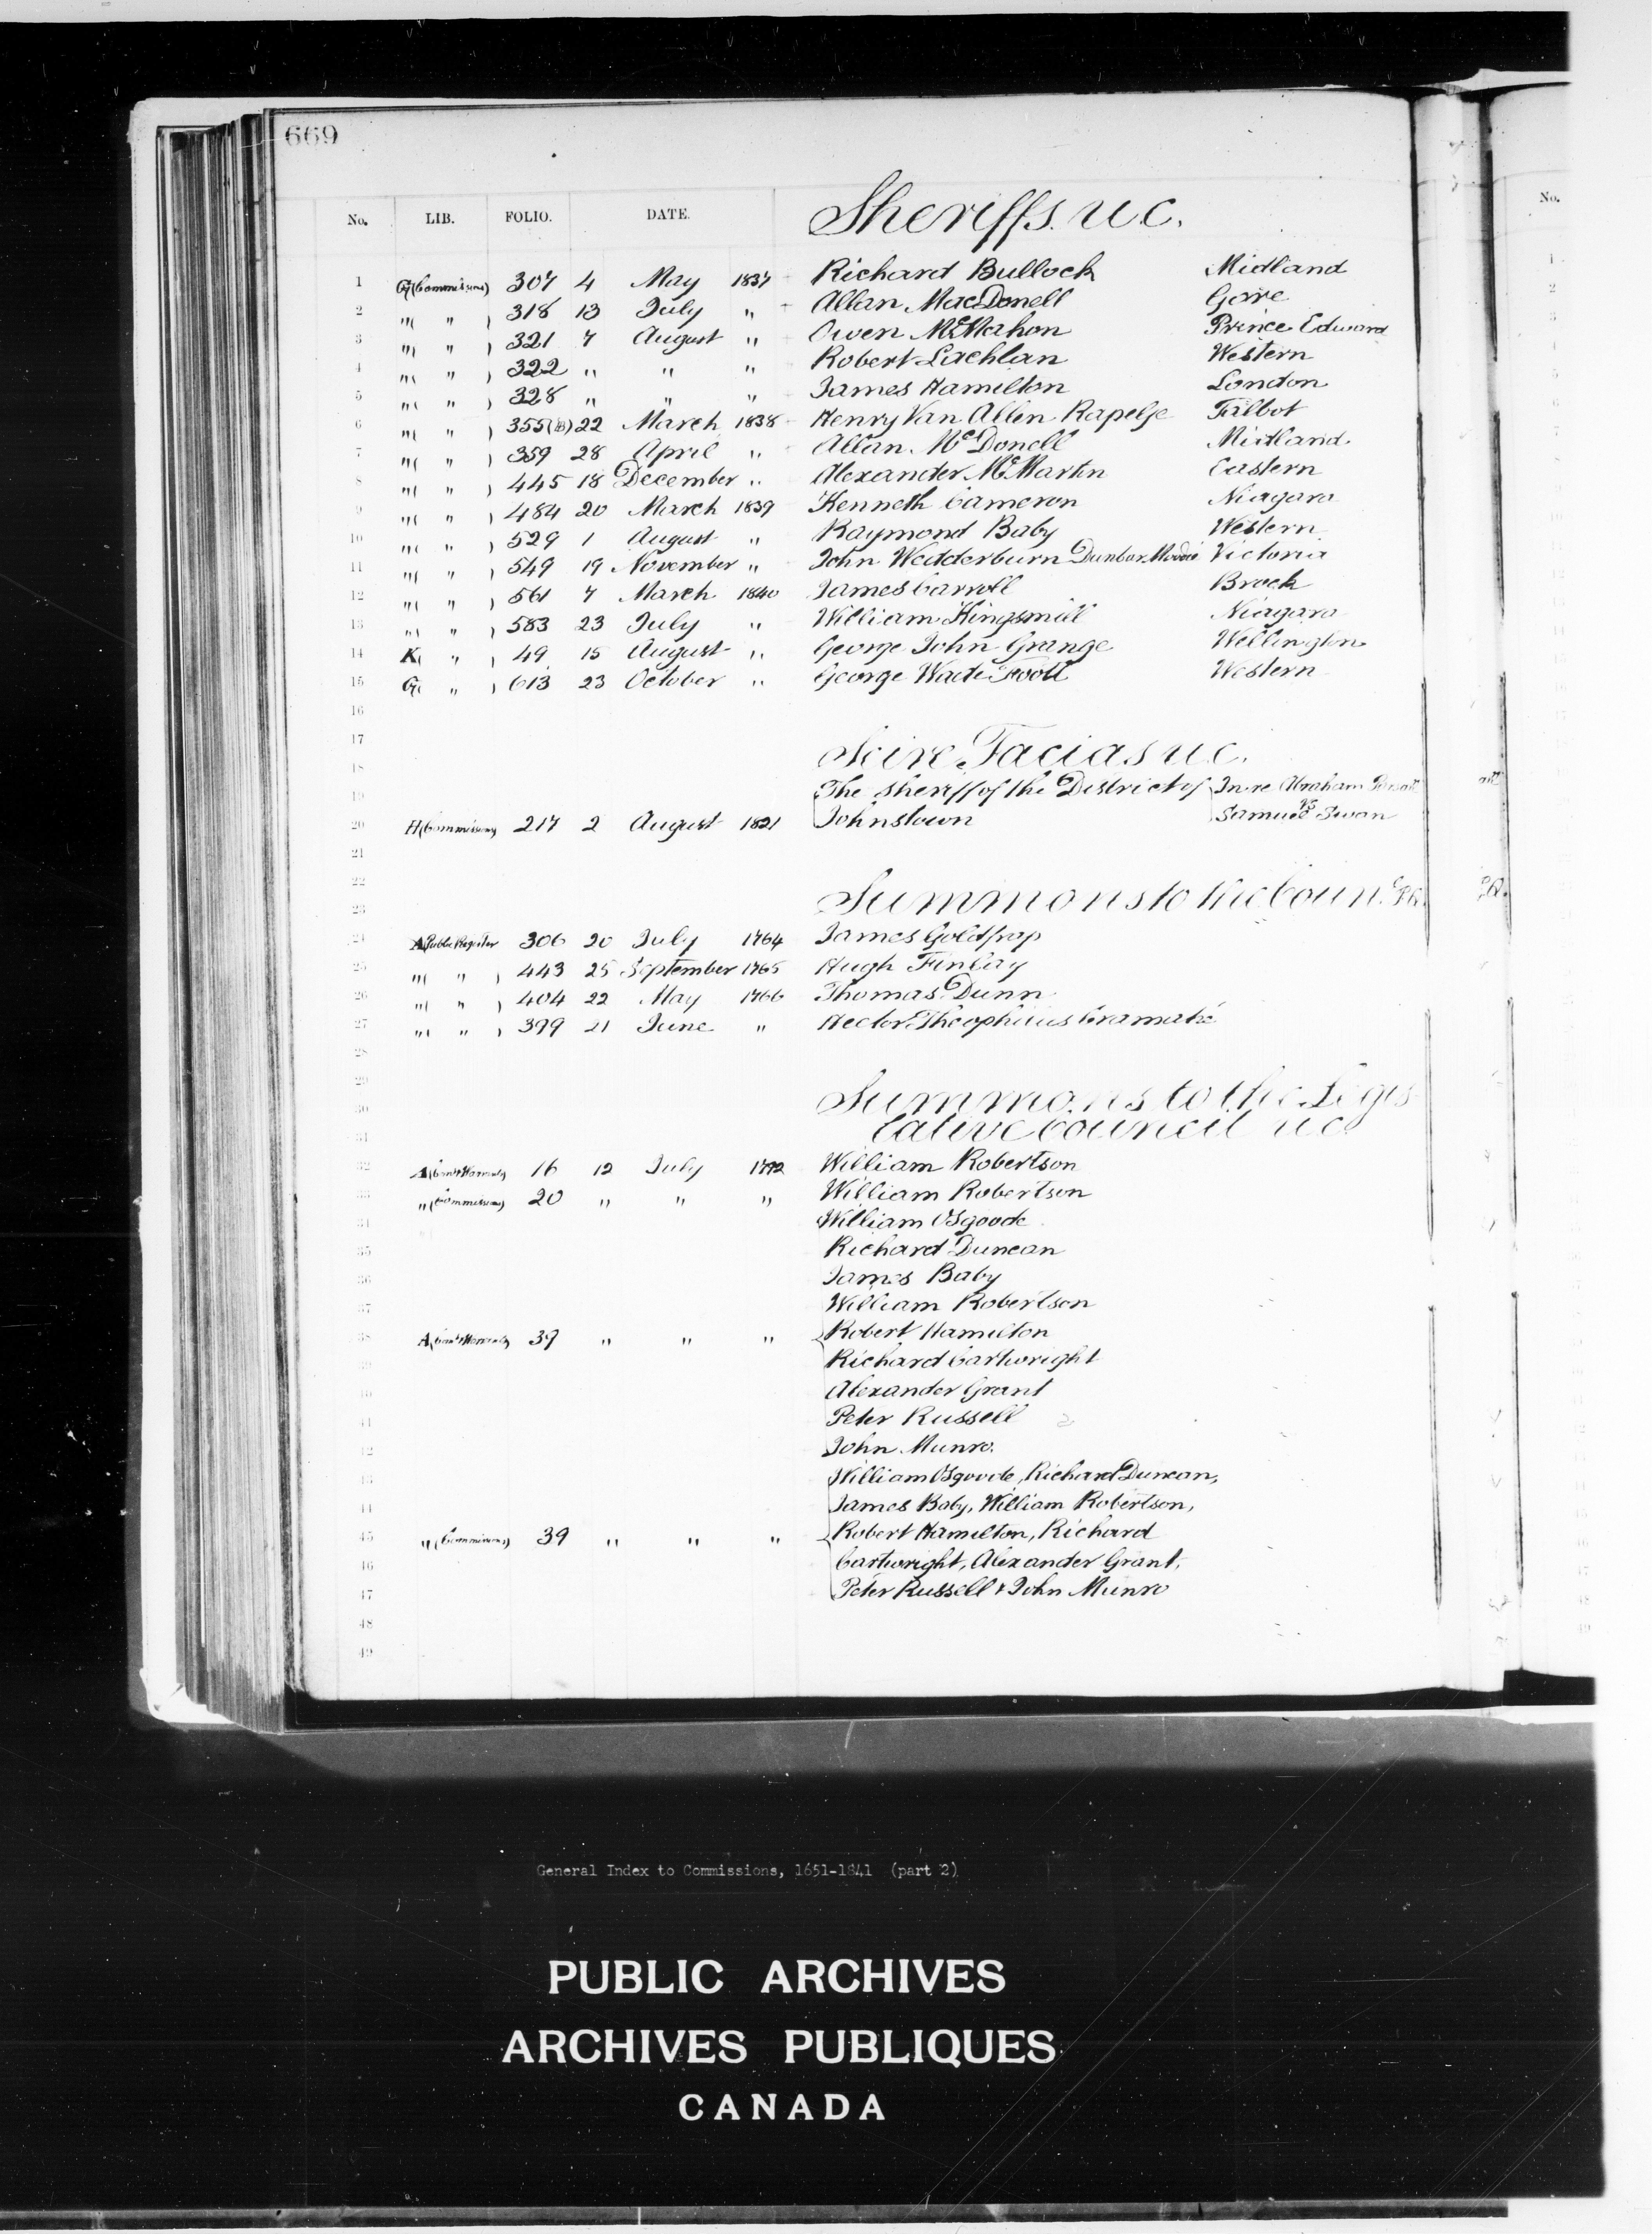 669
No. LIB. FOLIO. DATE. Sheriffs. U.C. No.
1 G (Commissions) 307 4 May 1837 Richard Bullock Midland
2 "( " ) 318 13 July " Allan MacDonell Gore
3 "( " ) 321 7 August " Owen McMahon Prince Edward
4 "( " ) 322 " " " Robert Lachlan Western
5 "( " ) 328 " " " James Hamilton London
6 "( " ) 355(B) 22 March 1838 Henry Van Allin Rapelje Talbot
7 "( " ) 359 28 April " Allan McDonell Midland
8 "( " ) 445 18 December " Alexander McMartin Eastern
9 "( " ) 484 20 March 1839 Kenneth Cameron Niagara
10 "( " ) 529 1 August " Raymond Baby Western
11 "( " ) 549 19 November " John Wedderburn Dunbar Moodie Victoria
12 "( " ) 561 7 March 1840 James Carroll Brock
13 "( " ) 583 23 July " William Kingsmill Niagara
14 K( " ) 49 15 August " George John Grange Wellington
15 G( " ) 613 23 October " George Wade Foott Western
16
17 Scire Facias U.C.
18
19 The Sheriff of the District of In re Abraham
20 H (Commissions) 217 2 August 1821 Johnstown vs Samuel Swan
21
22
23 Summons to the Coun. P.Q.
24 A (Public Register 306 20 July 1764 James Goldfrap
25 "( " ) 443 25 September 1765 Hugh Finlay
26 "( " ) 404 22 May 1766 Thomas Dunn
27 "( " ) 399 21 June " Hector Theophilus Cramahé
28
29
30 Summons to the Legis
31 lative Council U.C.
32 A (Cont Warrants) 16 12 July 1792 William Robertson
33 " (Commissions) 20 " " " William Robertson
34 William Osgoode
35 Richard Duncan
36 James Baby
37 William Robertson
38 A (Cont Warrants) 39 " " " Robert Hamilton
39 Richard Cartwright
40 Alexander Grant
41 Peter Russell
42 John Munro.
43 William Osgoode, Richard Duncan,
44 James Baby, William Robertson,
45 " (Commissions) 39 " " " Robert Hamilton, Richard
46 Cartwright, Alexander Grant,
47 Peter Russell & John Munro
48
49
General Index to Commissions, 1651-1841 (part 2)
PUBLIC ARCHIVES
ARCHIVES PUBLIQUES
CANADA